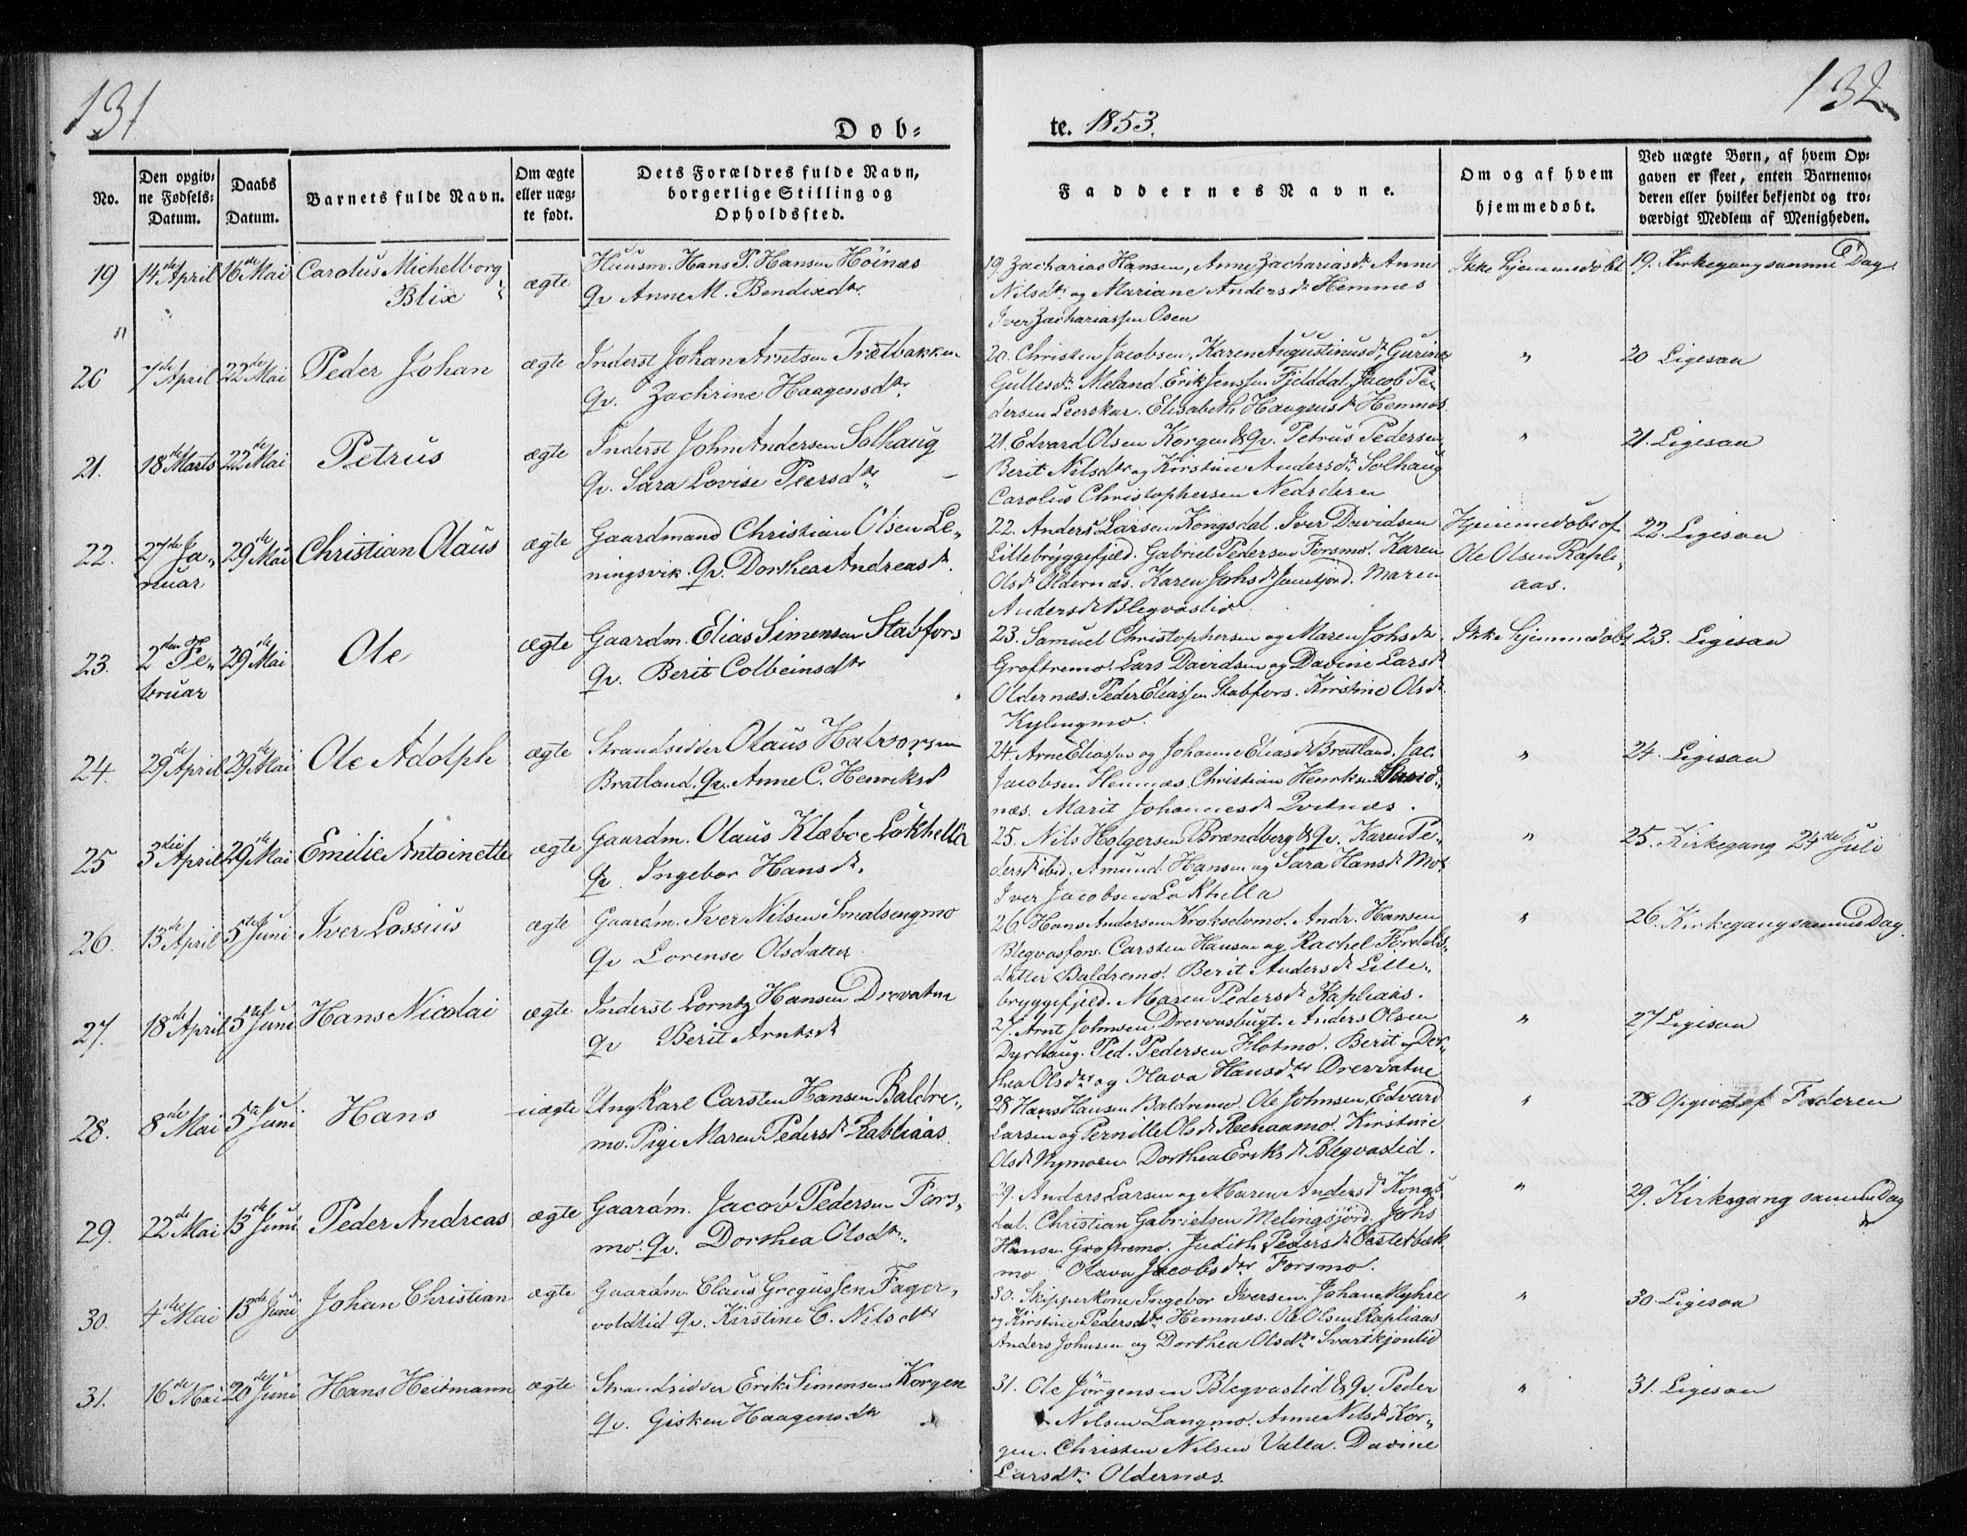 131
132
Døb=
te. 1853.
No.
Den opgiv=
ne Fødsels=
Datum.
Daabs
Datum.
Barnets fulde Navn.
Om ægte
eller uæg=
te født.
Dets Forældres fulde Navn,
borgerlige Stilling og
Opholdssted.
Faddernes Navne.
Om og af hvem
hjemmedøbt.
Ved uægte Børn, af hvem Op=
gaven er skeet, enten Barnemo=
deren eller hvilket bekjendt og tro=
værdigt Medlem af Menigheden.
19
14de April
16de Mai
Carolus Michelborg
Blix
ægte
Huusm. Hans P. Hansen Höinæs
Qv Anne M. Bendixdtr.
19. Zacharias Hansen, Anne Zachariasdr. Anne
Nilsdtr og Mariane Andersdr Hemnes
Iver Zachariassen Osen
Ikke hjemmedøbt
19. Kirkegang samme Dag
20
7de April
22de Mai
Peder Johan
ægte
Inderst Johan Arntsen Trætbakken
Qv. Zachrine Haagensdtr.
20. Christen Jacobsen, Karen Augustinusdr, Gurine
Gullesdr. Meland. Erik Jenssen Fjelddal, Jacob Pe-
dersen Leerskar. Elisabeth Haagensdr Hemnæs.
"
20 Ligesaa
21.
18de Marts
22de Mai
Petrus
ægte
Inderst John Andersen Solhaug
Qv. Sara Lovise Peersdtr.
21. Edvard Olsen Korgen & Qv. Petrus Pedersen
Berit Nilsdtr og Kirstine Andersdr. Solhaug
Carolus Christophersen Nedreleren
"
21. Ligesaa
22.
27de Ja-
nuar
29de Mai
Christian Olaus
ægte
Gaardmand Christian Olsen Le-
ningsvik. Qv. Dorthea Andreasdr.
22. Anders Larsen Kongsdal. Iver Davidsen
Lillebryggefjeld. Gabriel Pedersen Forsmo. Karen
Olsdr Oldernæs. Karen Johsdr. Maren
Andersdr Blegvaslid
Hjemmedøbt af
Ole Olsen Rapli-
aas.
22. Ligesaa
23.
2den Fe-
bruar
29de Mai
Ole
ægte
Gaardm. Elias Simensen Stabfors
Qv. Berit Colbeinsdtr
23. Samuel Christophersen og Maren Johsdr
Groftremo. Lars Davidsen og Davine Larsdr
Oldernæs. Peder Eliassen Stabfors. Kirstine Olsdr.
Kylingmo.
Ikke hjemmedøbt
23. Ligesaa
24.
29de April
29de Mai
Ole Adolph
ægte
Strandsidder Olaus Halvorsen
Bratland. Qv. Anne C. Henriksd
24. Arne Eliassen og Johanne Eliasdr Bratland. Jac.
Jacobsen Hemnæs. Christian Henriksen
næs. Marit Johannesdr Qvitnæs.
"
24. Ligesaa
25
3die April
29de Mai
Emilie Antoinette
ægte
Gaardm. Olaus Klæboe Løkhella
Qv. Ingebor Hansdr.
25. Nils Holgersen Brændberg & Qv. Karen Pe-
dersdr ibid. Amund Hansen og Sara Hansdr Mo
Iver Jacobsen Løkhella
"
25. Kirkegang 24de Juli
26.
13de April
5te Juni
Iver Lossius
ægte
Gaardm. Iver Nilsen Smalsengmo
Qv Lorense Olsdatter
26. Hans Andersen Krokselvmo. Andr. Hansen
Blegvasfors. Carsten Hansen og Rachel
datter Baldremo. Berit Andersdr Lille-
bryggefjeld. Maren Pedersdr Rapliaas.
"
26. Kirkegang samme Dag.
27.
18de April
5te Juni
Hans Nicolai
ægte
Inderst Lorntz Hansen Drevatne
Qv Berit Arntsdr
27. Arnt Johnsen Drevvasbugt. Anders Olsen
Dyrhaug. Ped. Pedersen Flotmo. Berit og Dor-
thea Olsdtr og Olava Hansdtr Drevvatne
"
27 Ligesaa
28.
8de Mai
5te Juni
Hans
uægte
Ungkarl Carsten Hansen Baldre-
mo. Pige Maren Pedersdr Rapliaas
28 Hans Hansen Baldremo. Ole Johnsen, Edvard
Larsen og Pernille Olsdr. Kirstine
Olsdr Nymoen. Dorthea Eriksdr Blegvaslid.
"
28 Opgivet af Faderen
29.
22de Mai
13de Juni
Peder Andreas
ægte
Gaardm. Jacob Pedersen Fors-
mo. Qv. Dorthea Olsdtr.
29. Anders Larsen og Maren Andersdr Kongs
dal. Christian Gabrielsen Melingsjord. Johs
Hansen Groftremo. Judith Pedersdr Oesterbæk
mo Olava Jacobsdtr Forsmo.
"
29. Kirkegang samme Dag
30.
4de Mai
13de Juni
Johan Christian
ægte
Gaardm. Claus Gregussen Fager-
voldlid Qv. Kirstine C. Nilsdtr
30. Skipperkone Ingebor Iversen. Johan Myhre
og Kirstine Pedersdtr Hemnæs. Ole Olsen Rapliaas
Anders Johnsen og Dorthea Olsdtr Svartkjønlid
"
30 Ligesaa
31.
16de Mai
20de Juni
Hans Heitmann
ægte
Strandsidder Erik Simensen Korgen
Qv. Gisken Haagensdtr
31. Ole Jörgensen Blegvaslid & Qv. Peder
Nilsen Langmo. Anne Nilsdr Kor-
gen. Christen Nilsen Valla. Davine
Larsdtr. Oldernæs.
"
31. Ligesaa